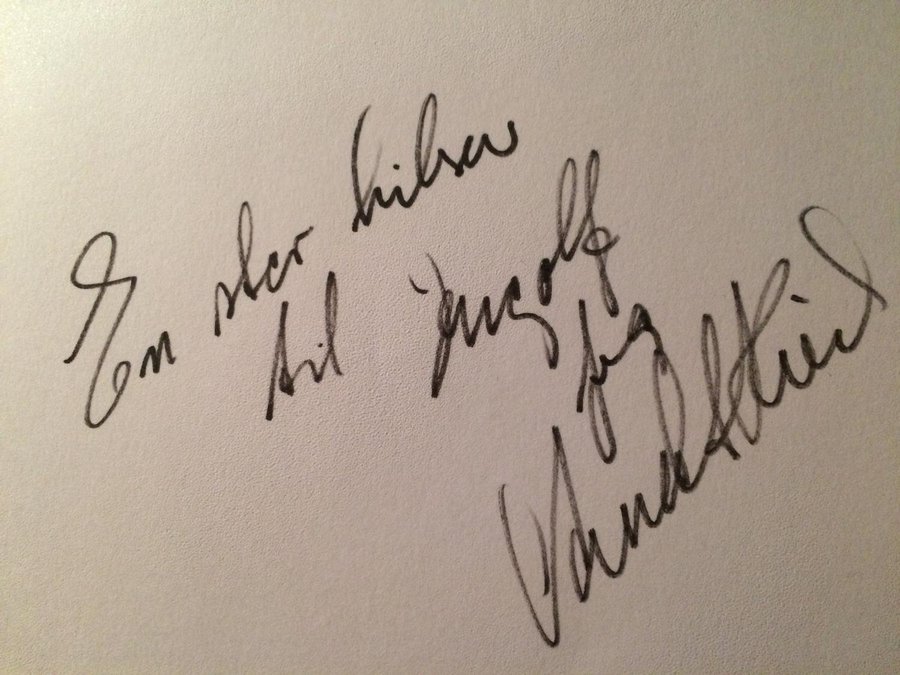 En stor hilsen
til Ingolf
fra